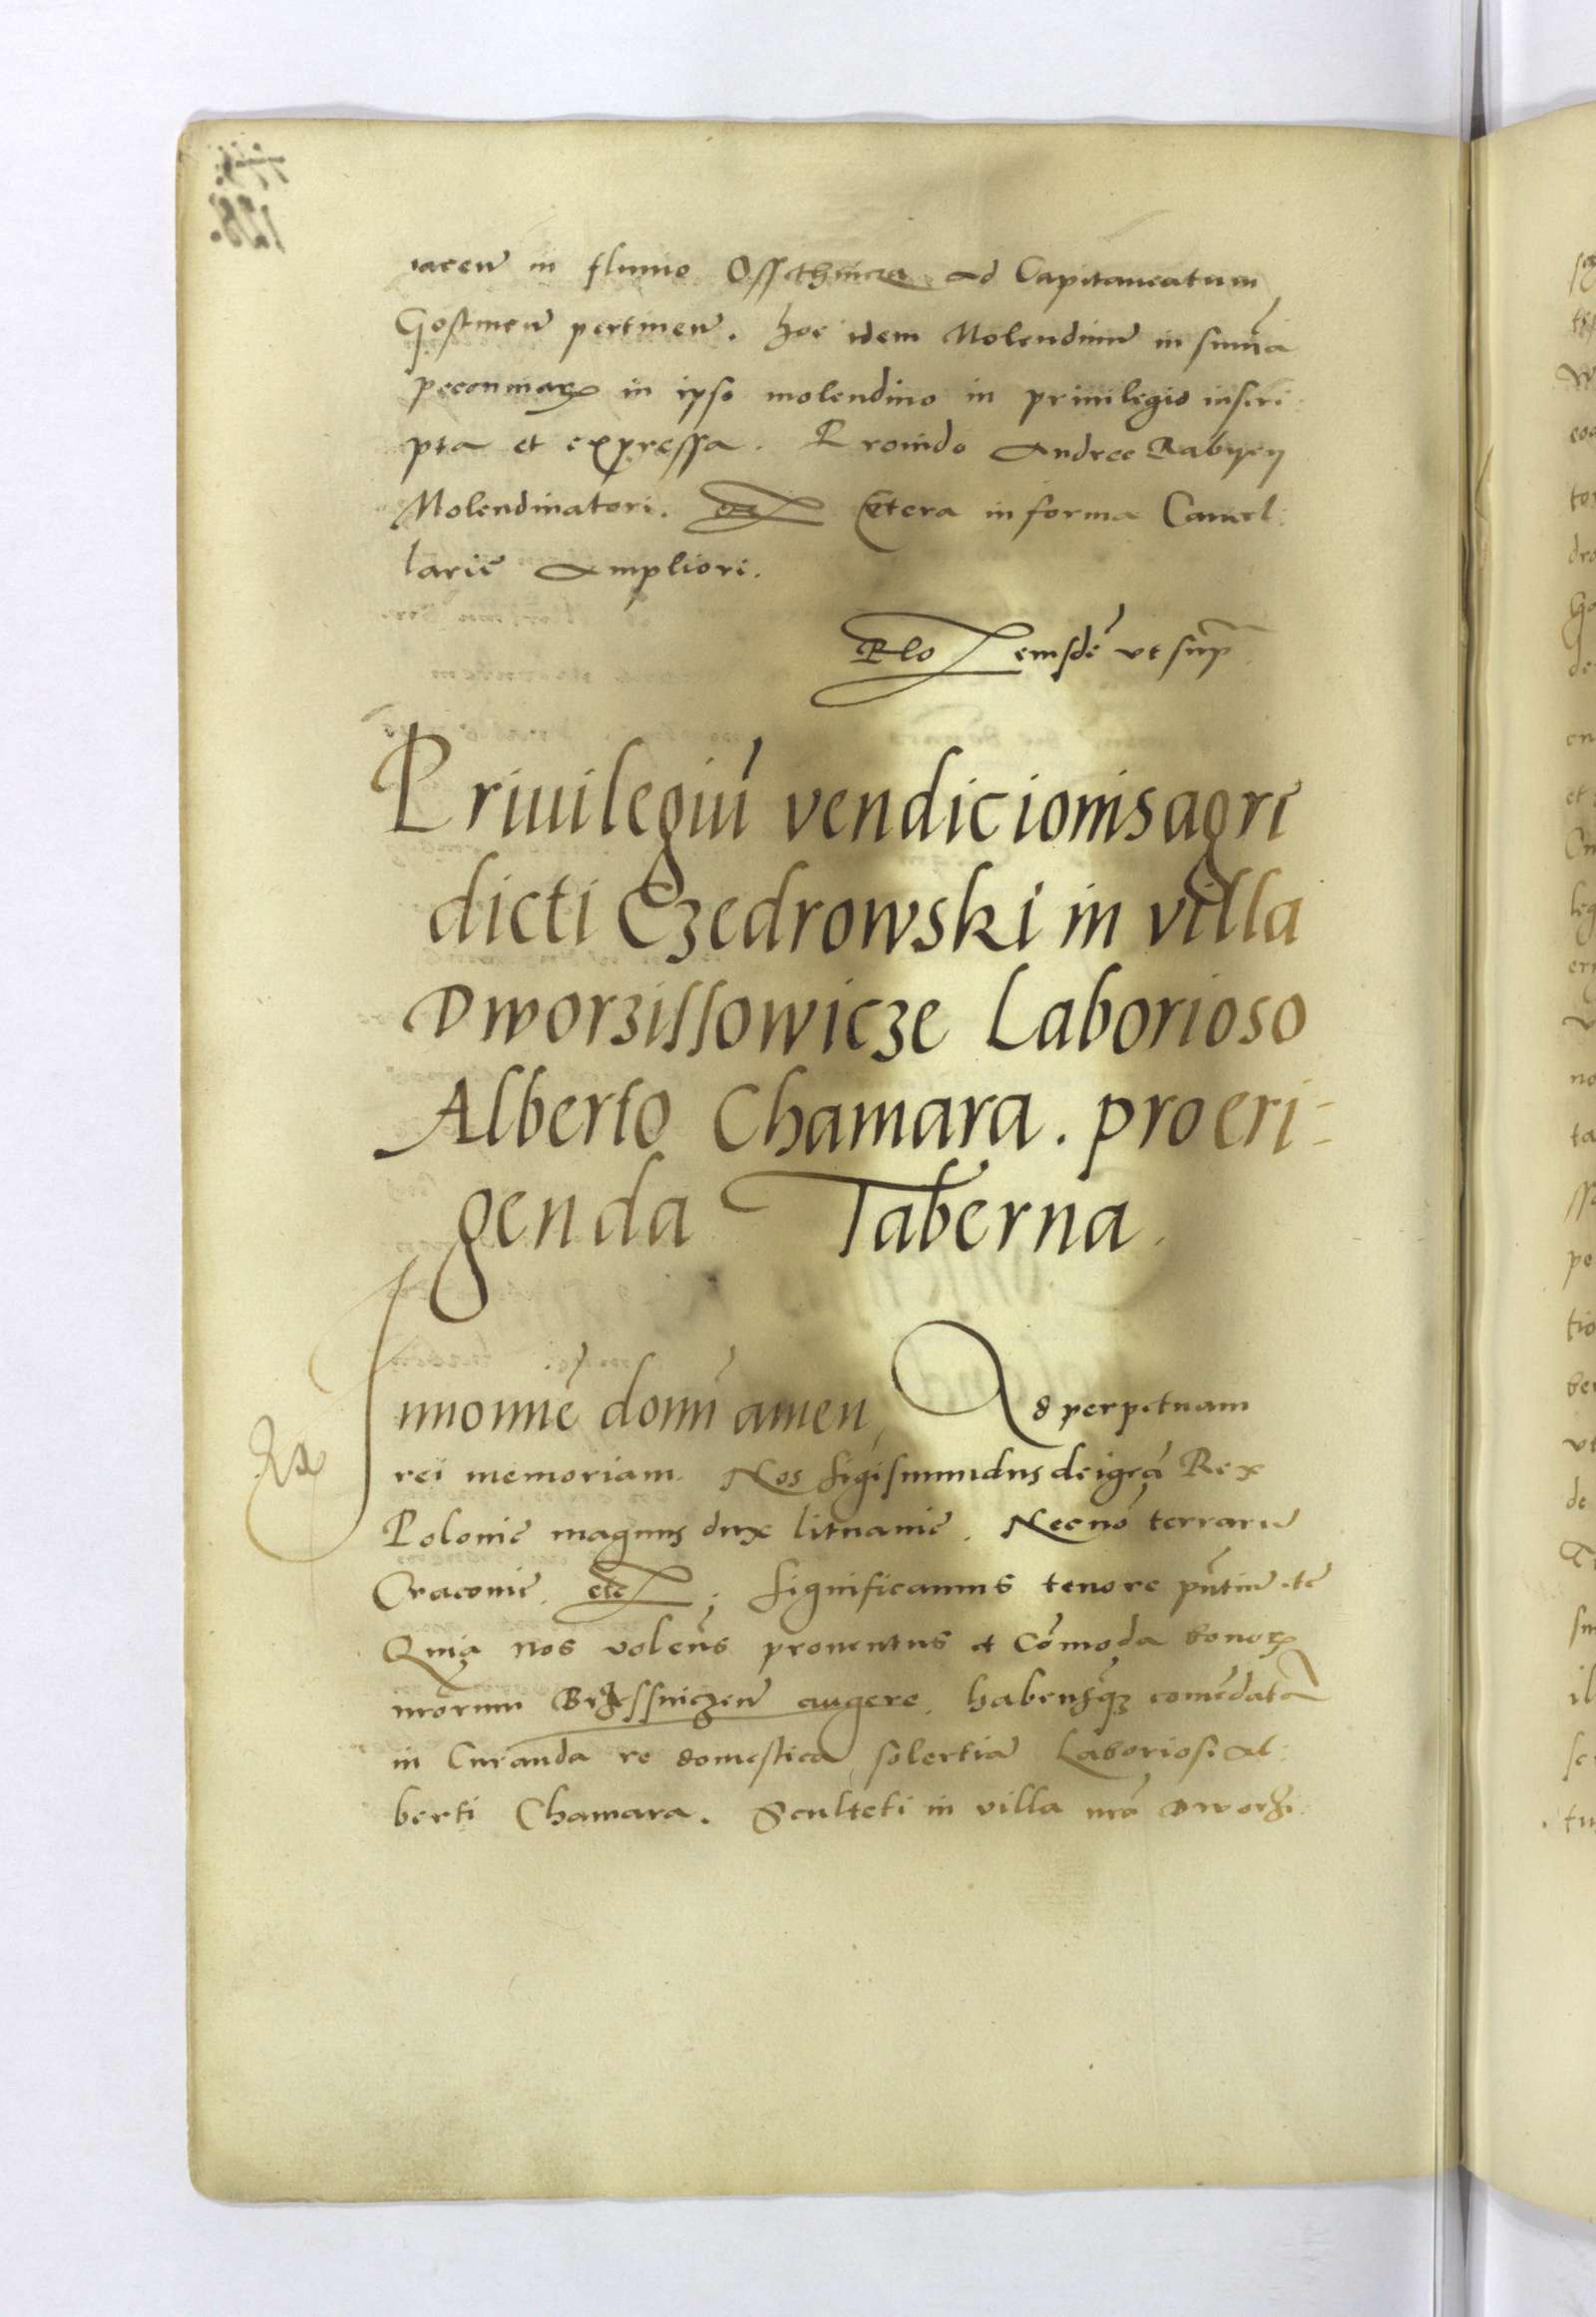 iacen̄ in flumie Ossthnicza ad Capitaneatum
Gostinen̄ pertinen̄. hoc idem Molendinū in sum̄a
peconiarꝝ in ipso molendino in priuilegio inscri
pta et expressa. Proinde Andree Rabyey
Molendinatori. etc Cetera in forma Cancel:
larie Ampliori.
Rlo eiusdē vt sup̄
Priuilegiū vendicionis agri
dicti Czedrowski in villa
Dworzissowicze Laborioso
Alberto Chamara. pro eri=
genda Taberna.
In noīne domī amen, Ad perpetuam
rei memoriam. Nos Sigismundus dei gr̄a Rex
Polonie magnus dux lituanie. Necnō terrarū
Cracouie. etc; Significamus tenore pn̄tiū etc
Quia nos volen̄s prouentus et Cōmoda bonorꝝ
nr̄orum Brzessniczen̄ augere, habensqꝫ comēdatā
in Curanda re domestica, solertiā Laboriosi Al:
berti Chamara. Sculteti in villa nr̄a Dworzi: